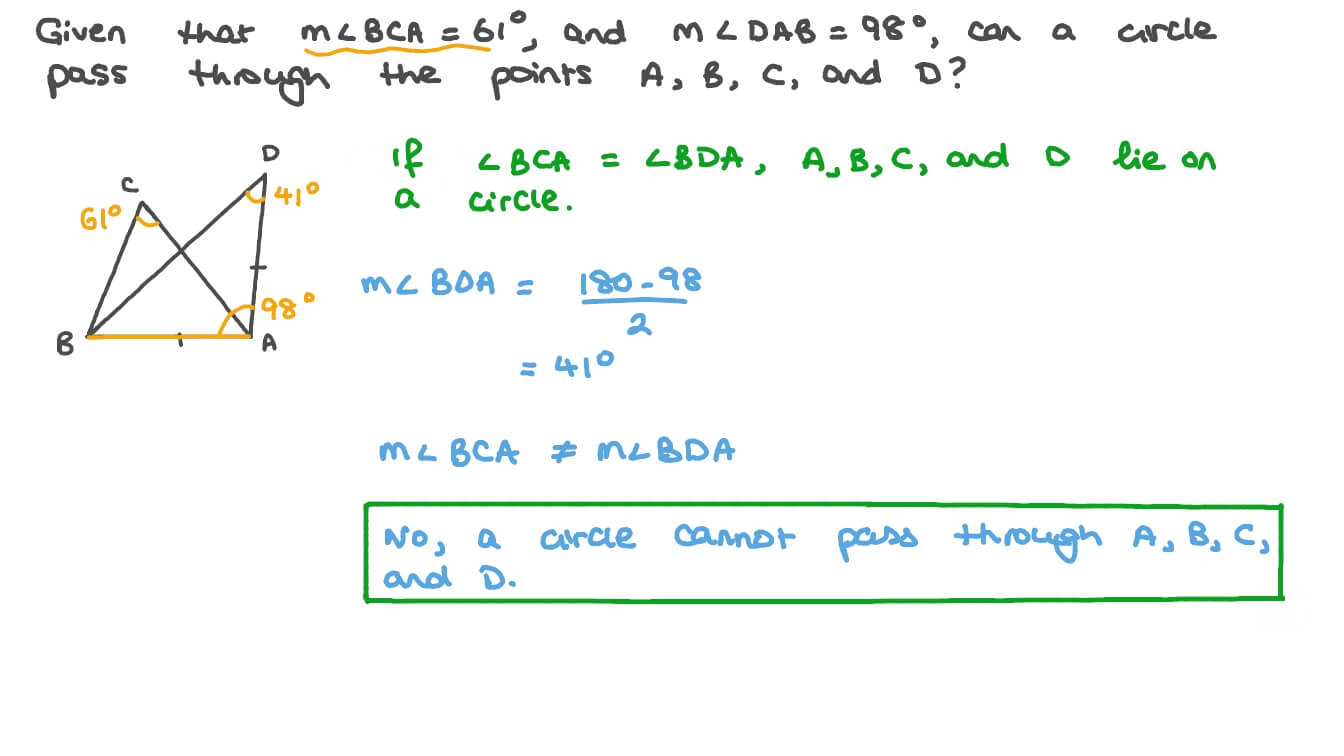 Given that m∠BCA = 61°, and m∠DAB = 98°, can a circle
pass through the points A, B, C, and D?
D
C
41°
61°
98°
B
A
If ∠BCA = ∠BDA, A, B, C, and D lie on
a circle.
m∠BDA = 180-98
2
= 41°
m∠BCA ≠ m∠BDA
No, a circle cannot pass through A, B, C,
and D.